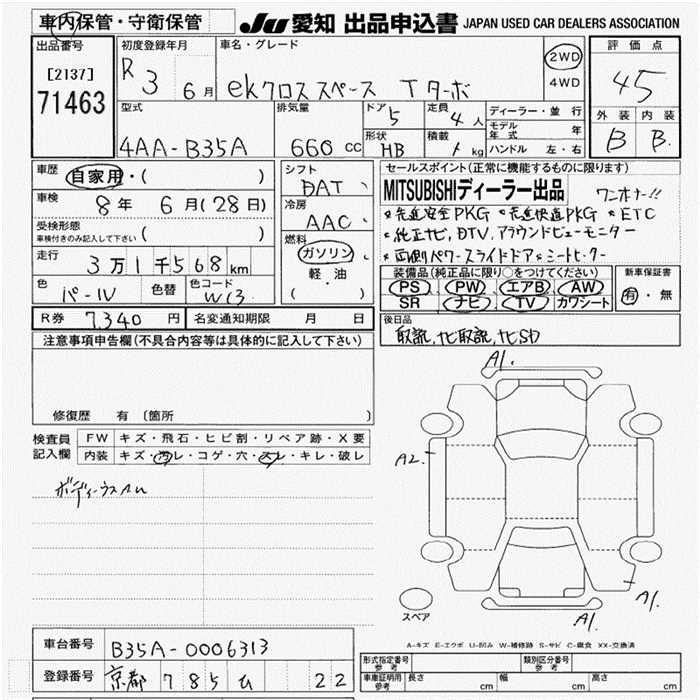 車内保管・守衛保管
JU 愛知 出品申込書 JAPAN USED CAR DEALERS ASSOCIATION
出品番号
[2137]
71463
初度登録年月
R 3 6月
車名・グレード
ekクロススペース Tターボ
2WD
4WD
評価点
4.5
外装 内装
B B
型式
4AA-B35A
排気量
660 cc
ドア
5
形状
HB
定員
4人
積載
kg
ディーラー・並行
モデル年式 年
ハンドル 左・右
車歴
自家用・( )
車検
8年 6月(28日)
受検形態
車検付きのみ記入して下さい ( )
走行
3万1千568km
色
パール
色替
色コード
W13
シフト
DAT
冷房
AAC
燃料
ガソリン
軽・油
( )
セールスポイント(正常に機能するものに限ります)
MITSUBISHIディーラー出品 ワンオーナー!!
*先進安全PKG *先進快適PKG *ETC
*純正ナビ,DTV,アラウンドビューモニター
*両側パワースライドドア*シートヒーター
装備品(純正品に限り○をつけてください)
PS PW エアB AW
SR ナビ TV カワシート
新車保証書
有・無
R券 7,340円
名変通知期限 月 日
後日品
取説,ナビ取説,ナビSD
注意事項申告欄(不具合内容等は具体的に記入して下さい)
修復歴 有 〔箇所 〕
検査員記入欄
FW キズ・飛石・ヒビ割・リペア跡・X要
内装 キズ・汚レ・コゲ・穴・スレ・キレ・破レ
A1.
A2.
A1.
A1.
スペア
A-キズ E-エクボ U-凹み W-補修跡 S-サビ C-腐食 XX-交換済
車台番号 B35A-0006313
登録番号 京都 785 ひ 22
形式指定番号 参考
類別区分番号 参考
車庫証明用 参考 長さ cm 幅 cm 高さ cm